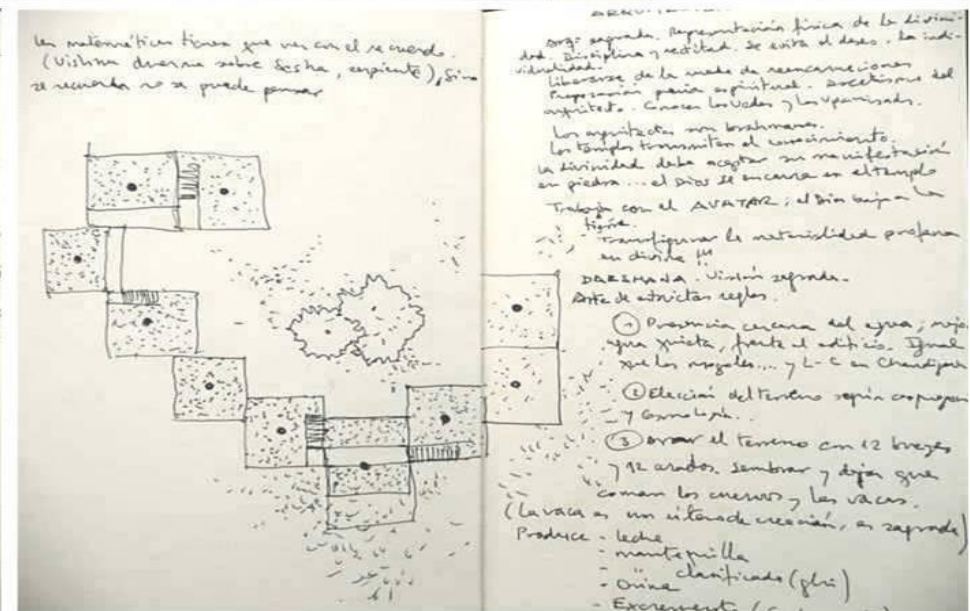 Las matemáticas tienen que ver con el recuerdo.
(Vishnu duerme sobre Sesha, serpiente), Si no
se recuerda no se puede pensar
Arq: sagrada. Representación física de la divini-
dad. Disciplina y rectitud. Se evita el deseo. La indi-
vidualidad.
Liberarse de la rueda de reencarnaciones
Preparación previa espiritual. Ascetismo del
arquitecto. Conocer los Vedas y los Upanisads.
Los arquitectos son brahmanes.
Los templos transmiten el conocimiento.
La divinidad debe aceptar su manifestación
en piedra... el Dios se encarna en el templo
Trabaja con el AVATAR; el Dios baja a la
tierra.
Transfigurar la materialidad profana
en divina !!!
DARSHANA. Visión sagrada.
Arte de estrictas reglas.
① Presencia cercana del agua; mejor
agua quieta, frente al edificio. Igual
que los mogoles... y L-C en Chandigarh
② Elección del terreno según
y cosmología.
③ Arar el terreno con 12 bueyes
y 12 arados. Sembrar y dejar que
coman los cuervos y las vacas.
(La vaca es un de creación, es sagrada)
Produce - leche
- mantequilla
" clarificada (ghi)
- Orina
- Excremento